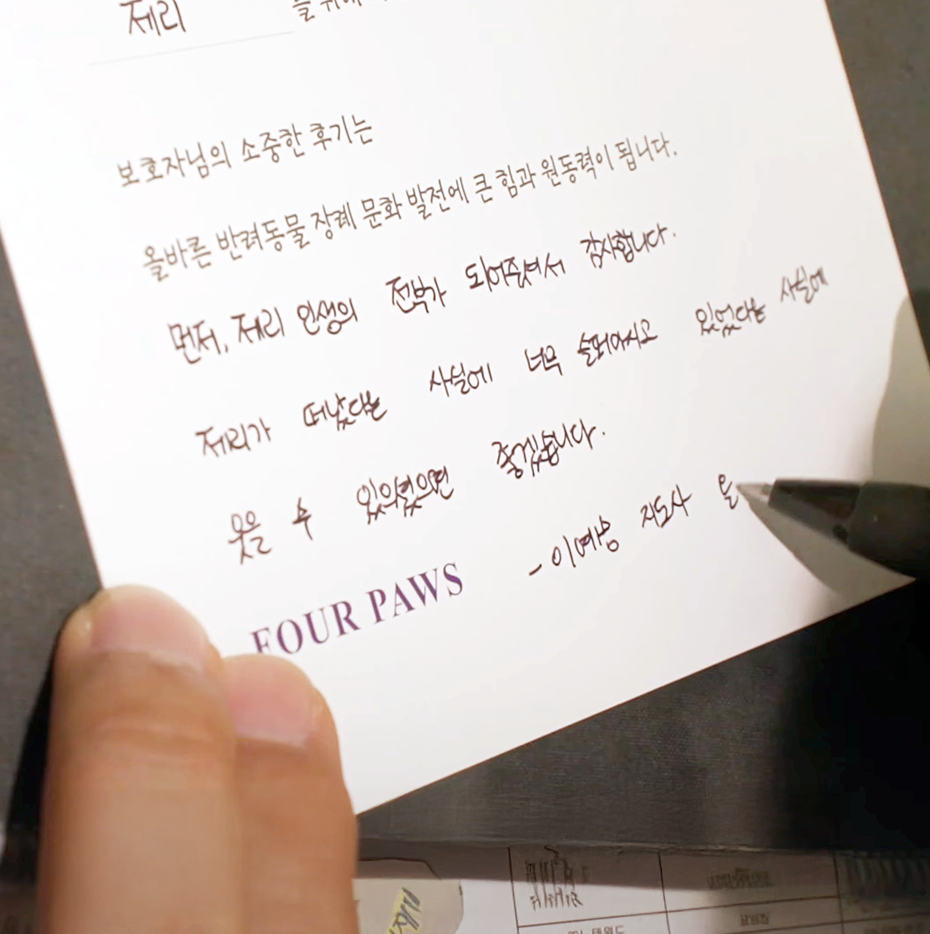 제리 를 위해
보호자님의 소중한 후기는
올바른 반려동물 장례 문화 발전에 큰 힘과 원동력이 됩니다.
먼저, 제리 인생의 전부가 되어주셔서 감사합니다.
제리가 떠났다는 사실에 너무 슬퍼마시고 있었다는 사실에
웃을 수 있으셨으면 좋겠습니다.
- 이예상 지도사 올
FOUR PAWS